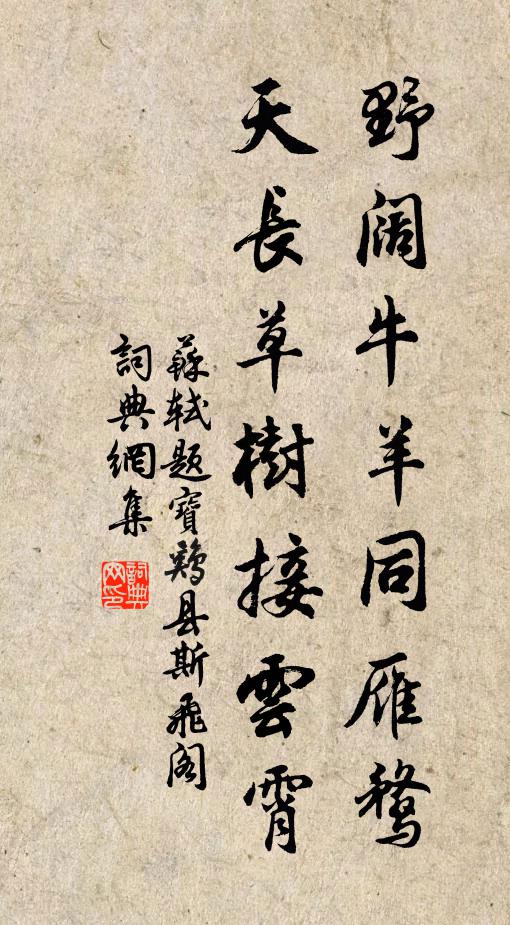 野阔牛羊同雁鶩
天長草樹接雲霄
蘇軾题寶鷄县斯飛阁
詞典網集
詞典
网印